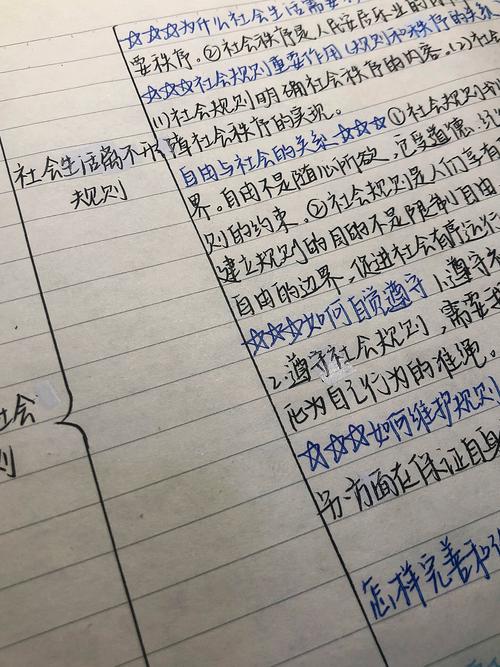 ☆☆☆为什么社会生活需要
要秩序。②社会秩序是人民安居乐业的
☆☆☆社会规则重要作用(规则和秩序的关系
(1)社会规则明确社会秩序的内容。(2)社会
障社会秩序的实现。
社会生活离不开
规则
自由与社会的关系☆☆☆①社会规则
界。自由不是随心所欲,它受道德、
则的约束。②社会规则是人们享有
建立规则的目的不是限制自由
自由的边界,促进社会有序运行
☆☆☆如何自觉遵守1.遵守
2.遵守社会规则,需要
化为自己行为的准绳。
社会
则
☆☆☆如何维护规则
另一方面在保证自身
怎样完善和